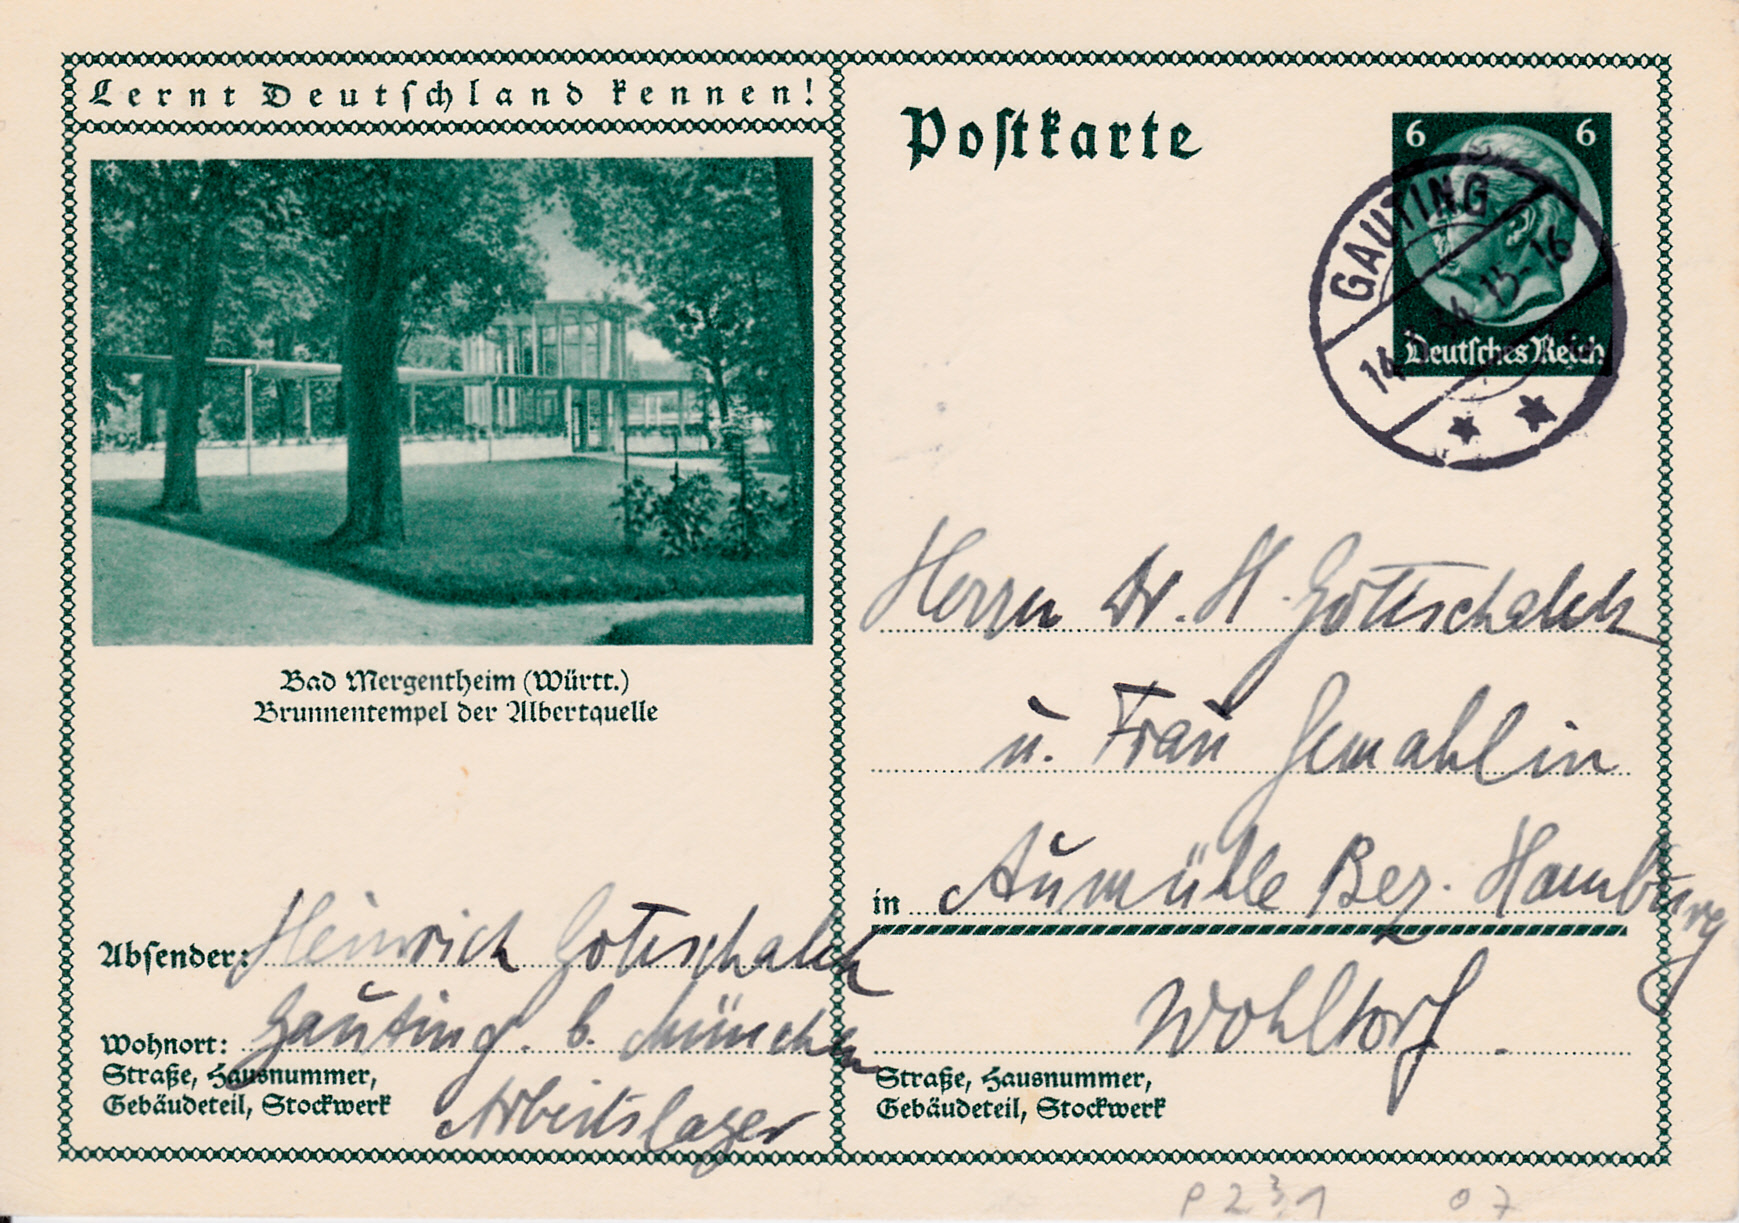 Lernt Deutschland kennen!
Postkarte
6 6
Deutsches Reich
GAUTING
15-16
Bad Mergentheim (Württ.)
Brunnentempel der Albertquelle
Herrn Dr. H. Gottschalch
u. Frau Gemahlin
in Aumühle Bez. Hamburg
Wohltorf.
Straße, Hausnummer,
Gebäudeteil, Stockwerk
Absender: Heinrich Gottschalch
Wohnort: Gauting b. München
Straße, Hausnummer,
Gebäudeteil, Stockwerk
Arbeitslager
P 231 07